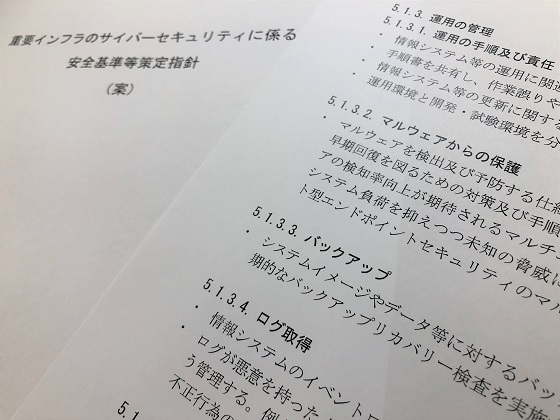 重要インフラのサイバーセキュリティに係る
安全基準等策定指針
(案)
5.1.3. 運用の管理
5.1.3.1. 運用の手順及び責任
・ 情報システム等の運用に関連
手順書を共有し、作業誤りや
・ 情報システム等の更新に関する
・ 運用環境と開発・試験環境を分
5.1.3.2. マルウェアからの保護
・ マルウェアを検出及び予防する仕組
早期回復を図るための対策及び手順
アの検知率向上が期待されるマルチ
システム負荷を抑えつつ未知の脅威に
ト型エンドポイントセキュリティのマル
5.1.3.3. バックアップ
・ システムイメージやデータ等に対するバッ
期的なバックアップリカバリー検査を実施
5.1.3.4. ログ取得
・ 情報システムのイベントロ
・ ログが悪意を持った
う管理する。例
不正行為の
5.1